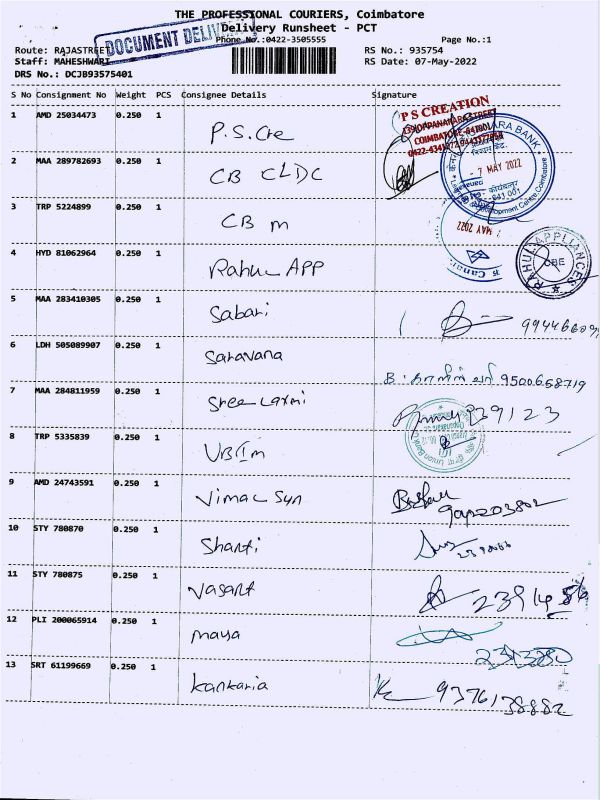 THE PROFESSIONAL COURIERS, Coimbatore
DOCUMENT DELIV
Delivery Runsheet - PCT
Phone No.:0422-3505555 Page No.:1
Route: RAJASTREET RS No.: 935754
Staff: MAHESHWARI RS Date: 07-May-2022
DRS No.: DCJB93575401
S No Consignment No Weight PCS Consignee Details Signature
1 AMD 25034473 0.250 1 P.S.Cre
P S CREATION
COIMBATORE-641001
ARA BANK
7 MAY 2022
641 001
Development Centre Coimbatore
2 MAA 289782693 0.250 1 CB CLDC
3 TRP 5224899 0.250 1 CB m
MAY 2022
Canar
4 HYD 81062964 0.250 1 Rahul APP
RAHUL APPLIANCES
CBE
5 MAA 283410305 0.250 1 Sabari
6 LDH 505089907 0.250 1 Saravana 9500658719
7 MAA 284811959 0.250 1 Sree Laxmi 239123
8 TRP 5335839 0.250 1 UBIm
Union Bank
9 AMD 24743591 0.250 1 Vimal Sun
10 STY 780870 0.250 1 Shanti
11 STY 780875 0.250 1 Vasant
12 PLI 200065914 0.250 1 maya
13 SRT 61199669 0.250 1 kankaria 9376138882